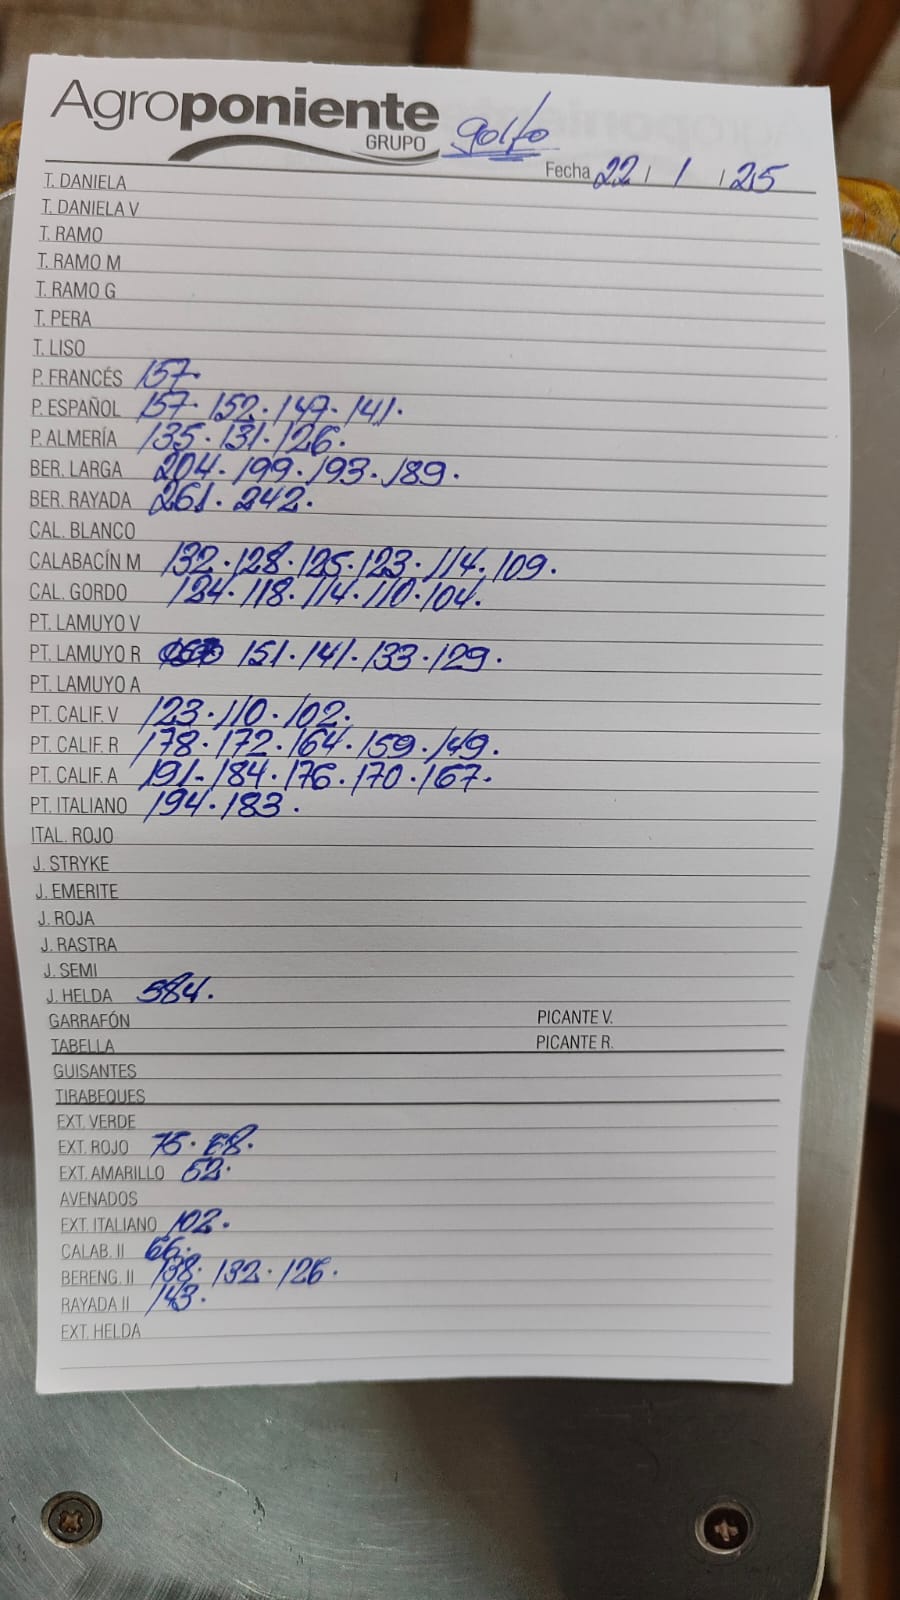 Agroponiente
GRUPO
golfo
Fecha 22 / 1 / 25
T. DANIELA
T. DANIELA V
T. RAMO
T. RAMO M
T. RAMO G
T. PERA
T. LISO
P. FRANCÉS 157.
P. ESPAÑOL 157. 152. 147. 141.
P. ALMERÍA 135. 131. 126.
BER. LARGA 204. 199. 193. 189.
BER. RAYADA 261. 242.
CAL. BLANCO
CALABACÍN M 132. 128. 125. 123. 114. 109.
CAL. GORDO 124. 118. 114. 110. 104.
PT. LAMUYO V
PT. LAMUYO R 151. 141. 133. 129.
PT. LAMUYO A
PT. CALIF. V 123. 110. 102.
PT. CALIF. R 178. 172. 164. 159. 149.
PT. CALIF. A 191- 184. 176. 170. 167.
PT. ITALIANO 194. 183.
ITAL. ROJO
J. STRYKE
J. EMERITE
J. ROJA
J. RASTRA
J. SEMI
J. HELDA 584.
GARRAFÓN PICANTE V.
TABELLA PICANTE R.
GUISANTES
TIRABEQUES
EXT. VERDE
EXT. ROJO 75.
EXT. AMARILLO 52.
AVENADOS
EXT. ITALIANO 102.
CALAB. II 66.
BERENG. II 138. 132. 126.
RAYADA II 143.
EXT. HELDA